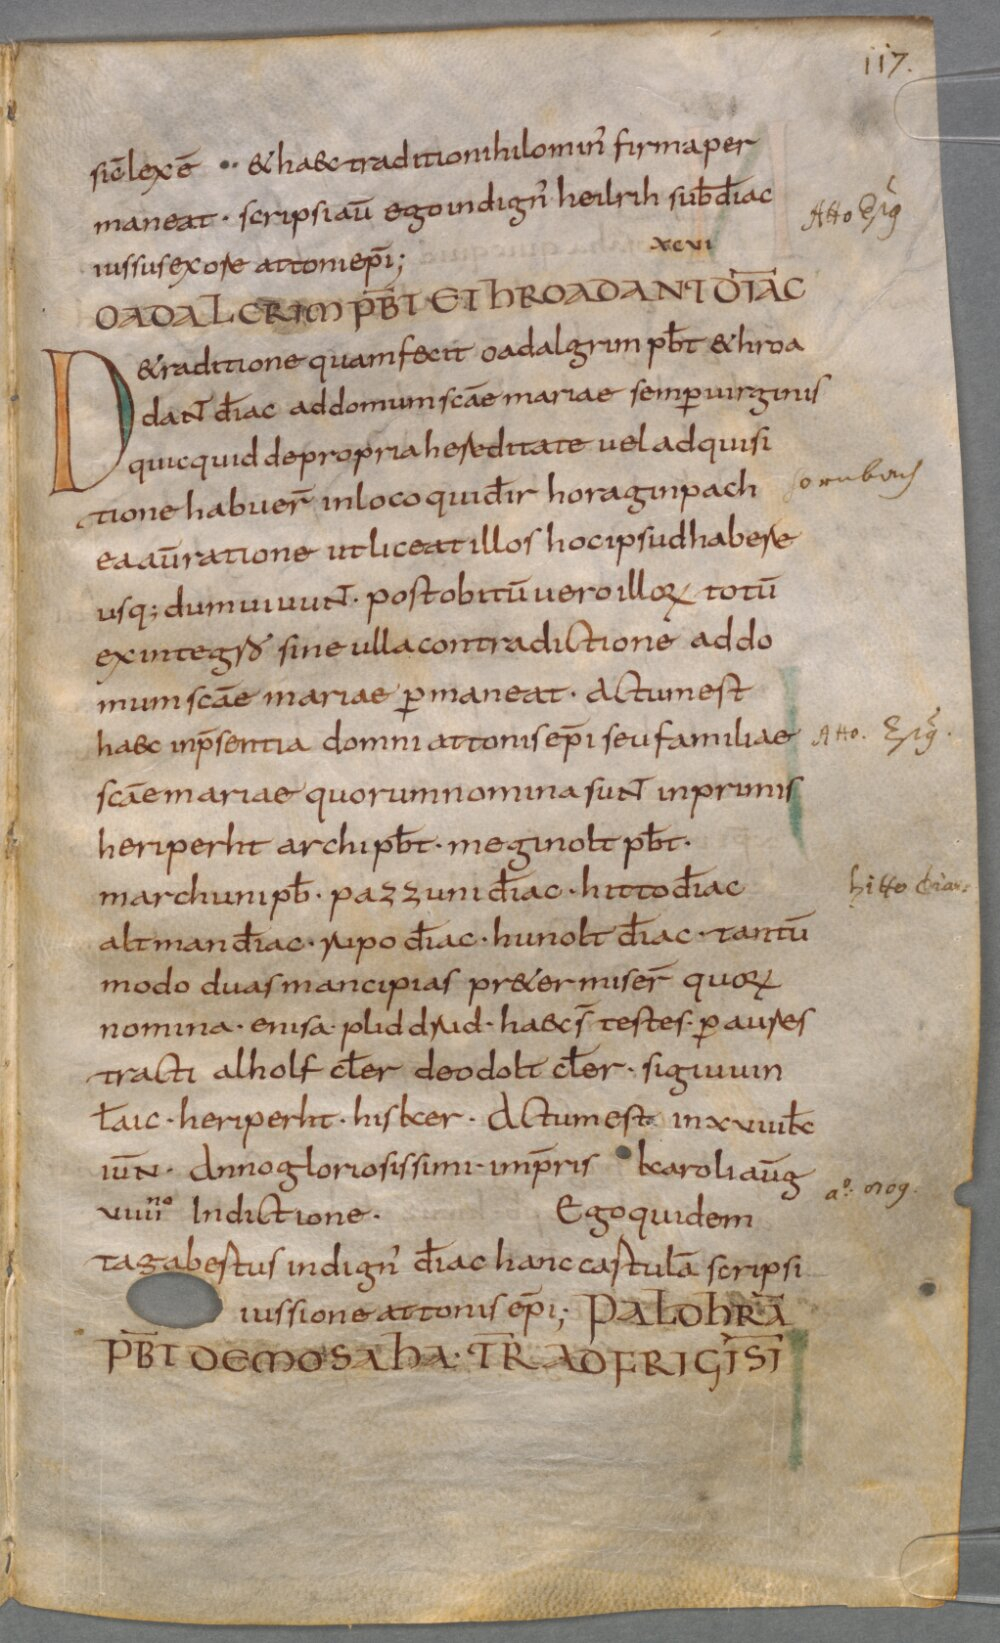 117.
sic̄ lex ē & haec traditio nihilomin' firma per
maneat · scripsi aū ego indign' heilrih subđiac
Atto Ep̄s Frisīg
iussus ex ore attoni ep̄i;
xcvi
OADALCRIM P̄B̄T ET HROADANT D̄IAC
De traditione quam fecit oadalgrim pb̄t & hroa
dant điac ad domum scāe mariae semp̱ uirginis
quicquid de propria hereditate uel adquisi
tione habuer̄ in loco qui đir horaginpach
hornbach
ea aū ratione ut liceat illos hoc ipsud habere
usq; dum uiuunt · post obitū uero illoꝝ totū
ex integro sine ulla contradictione ad do
mum scāe mariae p̱maneat · Actum est
haec in p̄sentia domni attonis ep̄i seu familiae
Atto. Frisīg.
scāe mariae quorum nomina sunt in primis
heriperht archipb̄t · meginolt pb̄t ·
marchuni pb̄ · pazzuni điac · hitto điac
hitto diac:
altman điac · ripo điac · hunolt điac · tantū
modo duas mancipias pr&ermiser̄ quoꝝ
nomina · enisa · pliddrud · haec s̄ testes · p̱ aures
tracti alholf cłer deodolt cłer · sigiuuin
łaic · heriperht · hiskcer · Actum est in xviii kł
iūn · Anno gloriosissimi imp̄ris karoli aūg
a°: 809.
viiii no Indictione · Ego quidem
tagabertus indign' điac hanc cartulā scripsi
iussione attonis ep̄i; PALDHRĀ
P̄B̄T DE MOSAHA · T̄R AD FRIGĪSĪ